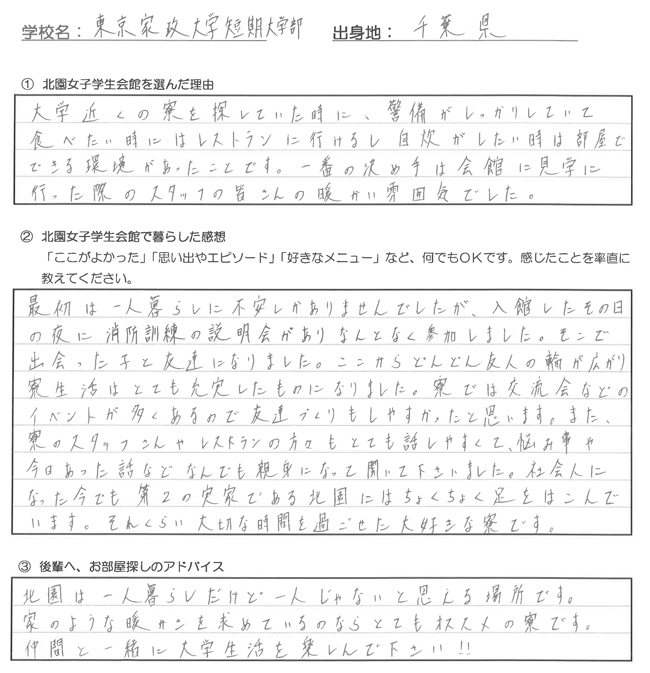 学校名： 東京家政大学短期大学部 出身地： 千葉県
① 北園女子学生会館を選んだ理由
大学近くの寮を探していた時に、警備がしっかりしていて
食べたい時にはレストランに行けるし自炊がしたい時は部屋で
できる環境があったことです。一番の決め手は会館に見学に
行った際のスタッフの皆さんの暖かい雰囲気でした。
② 北園女子学生会館で暮らした感想
「ここがよかった」「思い出やエピソード」「好きなメニュー」など、何でもOKです。感じたことを率直に
教えてください。
最初は一人暮らしに不安しかありませんでしたが、入館したその日
の夜に消防訓練の説明会がありなんとなく参加しました。そこで
出会った子と友達になりました。ここからどんどん友人の輪が広がり
寮生活はとても充実したものになりました。寮では交流会などの
イベントが多くあるので友達づくりもしやすかったと思います。また、
寮のスタッフさんやレストランの方々もとても話しやすくて、悩み事や
今日あった話などなんでも親身になって聞いて下さいました。社会人に
なった今でも第2の実家である北園にはちょくちょく足をはこんで
います。それくらい大切な時間を過ごせた大好きな寮です。
③ 後輩へ、お部屋探しのアドバイス
北園は一人暮らしだけど一人じゃないと思える場所です。
家のような暖かさを求めているのならとてもオススメの寮です。
仲間と一緒に大学生活を楽しんで下さい!!